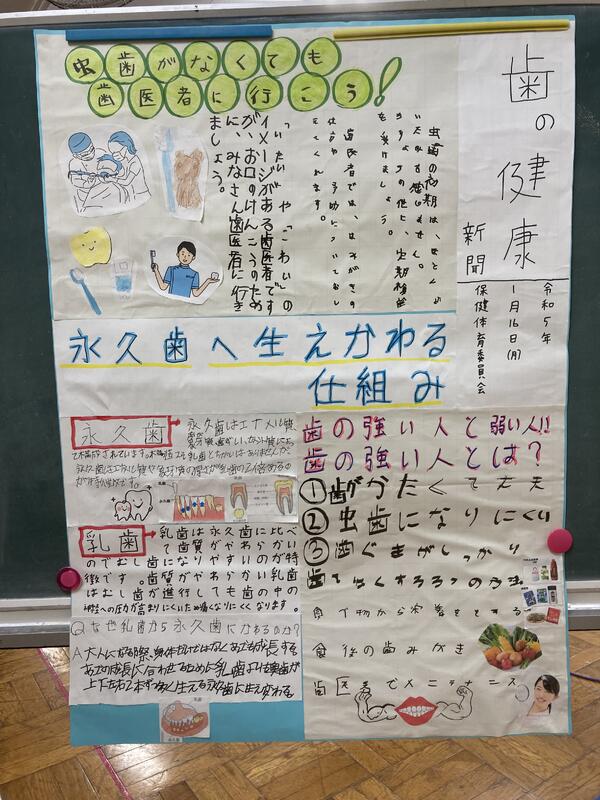 歯の健康
新聞
令和5年
1月16日(月)
保健体育委員会
虫歯がなくても
歯医者に行こう!
虫歯の初期は、ほとんど
を受けましょう。
歯医者では、はみがきの
てくれます。
「いたい」や「こわい」の
イメージがある歯医者です
が、お口のけんこうのため
に、みなさん歯医者に行き
ましょう。
永久歯へ生えかわる
仕組み
永久歯
永久歯はエナメル質、
乳歯
乳歯は永久歯に比べ
て歯質がやわらかい
のでむし歯になりやすいが特
徴です。歯質がやわらかい乳歯
はむし歯が進行しても歯の中の
神経への圧力が高まりにくいため痛くなりにくくなります。
Qなぜ乳歯から永久歯にかわるのか?
A大人になる際、身体だけではなくあごも成長する
あごの成長に合わせるために乳歯よりは奥歯が
上下左右2本ずつ多く生える永久歯に生え変わる
歯の強い人と弱い人!!
歯の強い人とは?
①歯がかたくて丈夫
②虫歯になりにくい
③歯ぐきがしっかり
食べ物から栄養をとる
食後の歯みがき
歯医者でメンテナンス